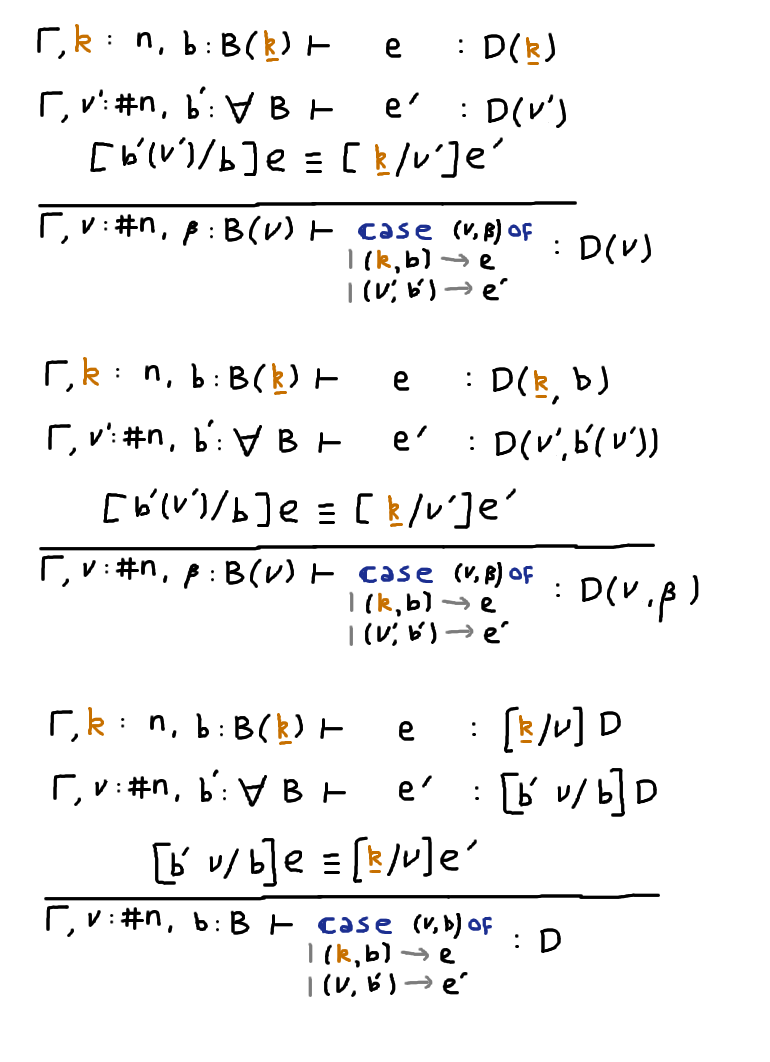 Γ, k : n, b : B(k) ⊢ e : D(k)
Γ, ν' : #n, b' : ∀ B ⊢ e′ : D(ν')
[b'(ν')/b]e ≡ [k/ν']e′
Γ, ν : #n, β : B(ν) ⊢ case (ν,β) of : D(ν)
| (k,b) → e
| (ν', b') → e′
Γ, k : n, b : B(k) ⊢ e : D(k, b)
Γ, ν' : #n, b' : ∀ B ⊢ e′ : D(ν', b'(ν'))
[b'(ν')/b]e ≡ [k/ν']e′
Γ, ν : #n, β : B(ν) ⊢ case (ν,β) of : D(ν, β)
| (k,b) → e
| (ν', b') → e′
Γ, k : n, b : B(k) ⊢ e : [k/ν] D
Γ, ν : #n, b' : ∀ B ⊢ e′ : [b' ν/b] D
[b' ν/b]e ≡ [k/ν]e′
Γ, ν : #n, b : B ⊢ case (ν,b) of : D
| (k,b) → e
| (ν, b') → e′